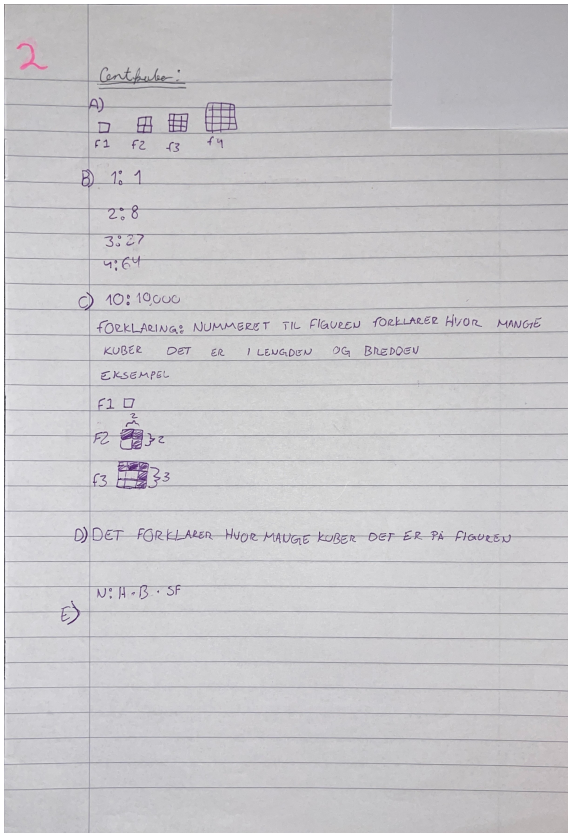 2
Centikuber:
A)
F1 F2 f3 f4
B) 1: 1
2: 8
3: 27
4: 64
C) 10: 10,000
FORKLARING: NUMMERET TIL FIGUREN FORKLARER HVOR MANGE
KUBER DET ER I LENGDEN OG BREDDEN
EKSEMPEL
F1
2
F2 }2
f3 }3
D) DET FORKLARER HVOR MANGE KUBER DET ER PÅ FIGUREN
N: H · B · SF
E)